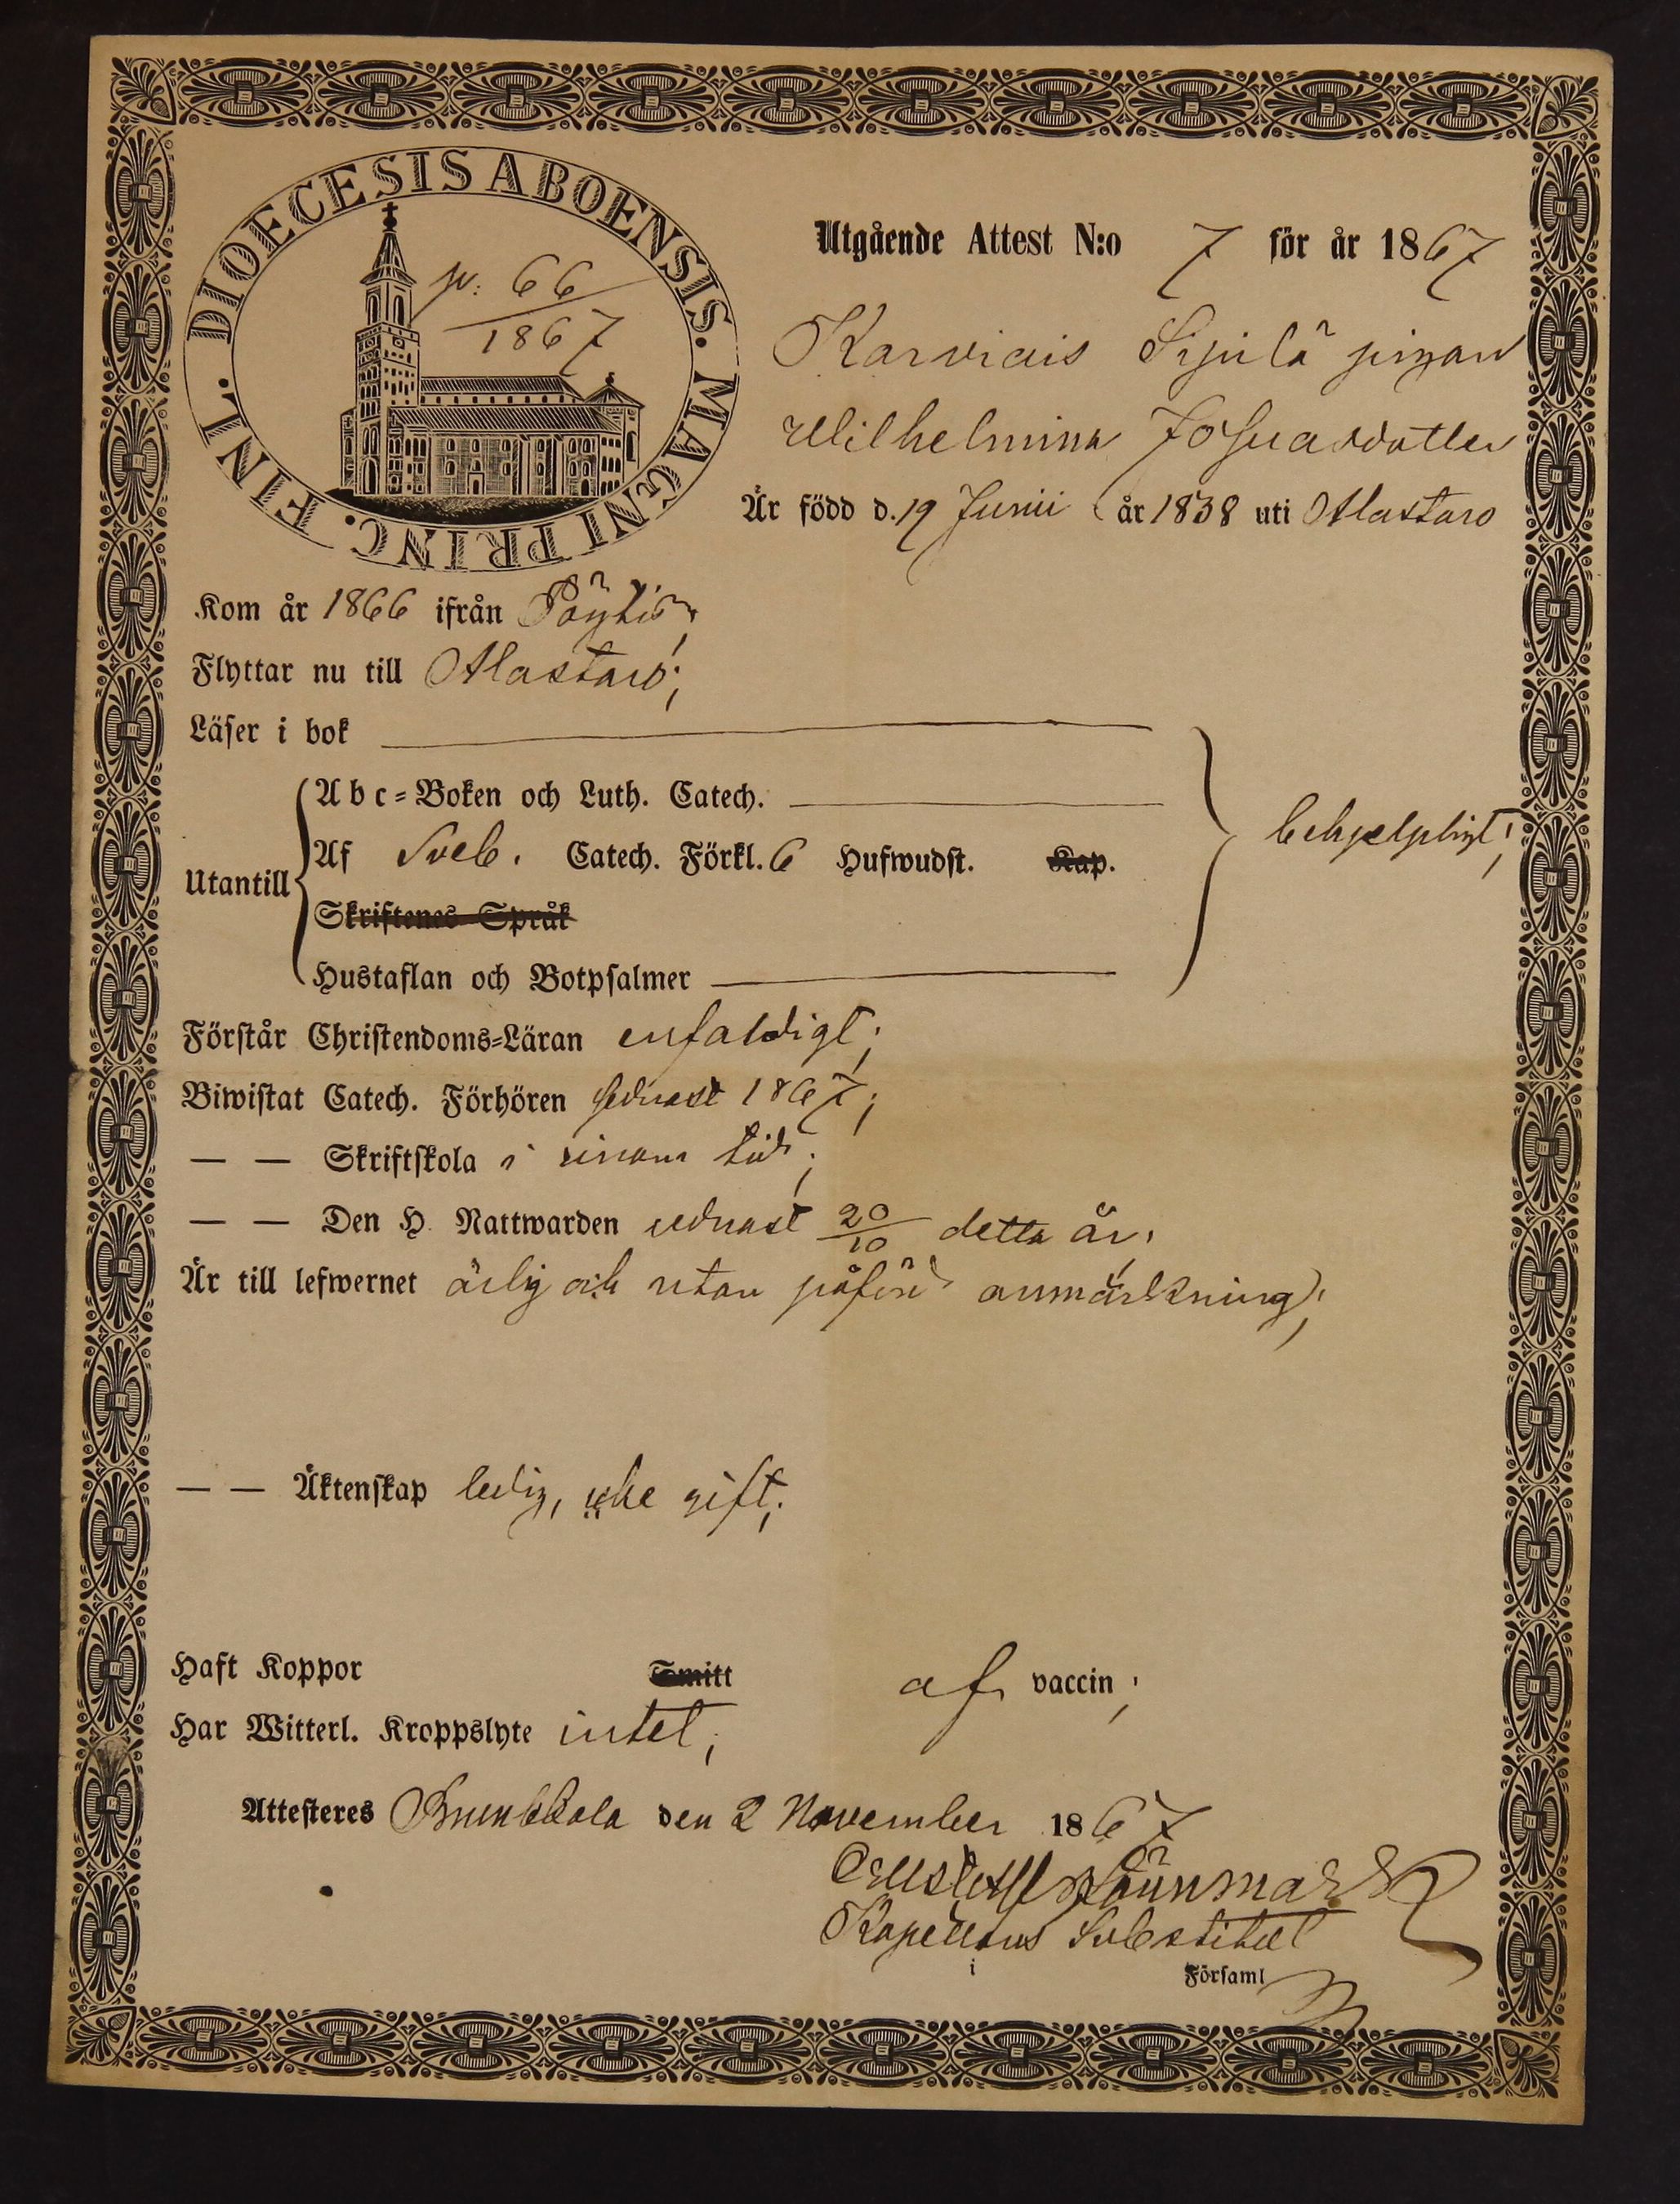 DIOECESIS ABOENSIS. MAGNI PRINC. FINL.
N: 66
1867
Utgående Attest N:o 7 för år 1867
Karviais Sipilä pigan
Wilhelmina Josuasdotter
Är född d. 19 Junii år 1838 uti Alastaro
Kom år 1866 ifrån Pöytis;
Flyttar nu till Alastaro;
Läser i bok
Utantill
Abc-Boken och Luth. Catech.
Af Sveb. Catech. Förkl. 6 Hufwudst. Kap.
Skriftenes Språk
Hustaflan och Botpsalmer
behjelpligt;
Förstår Christendoms-Läran enfaldigt;
Biwistat Catech. Förhören sednast 1867;
— — Skriftskola i sinom tid;
— — Den H. Nattwarden sednast 20/10 detta år;
Är till lefwernet ärlig och utan påförd anmärkning;
— — Äktenskap ledig, icke gift;
Haft Koppor Smitt af vaccin;
Har Witterl. Kroppslyte intet;
Attesteres Brunkkala den 2 November 1867
Grönmark
Kapellans Substitut
i Församl